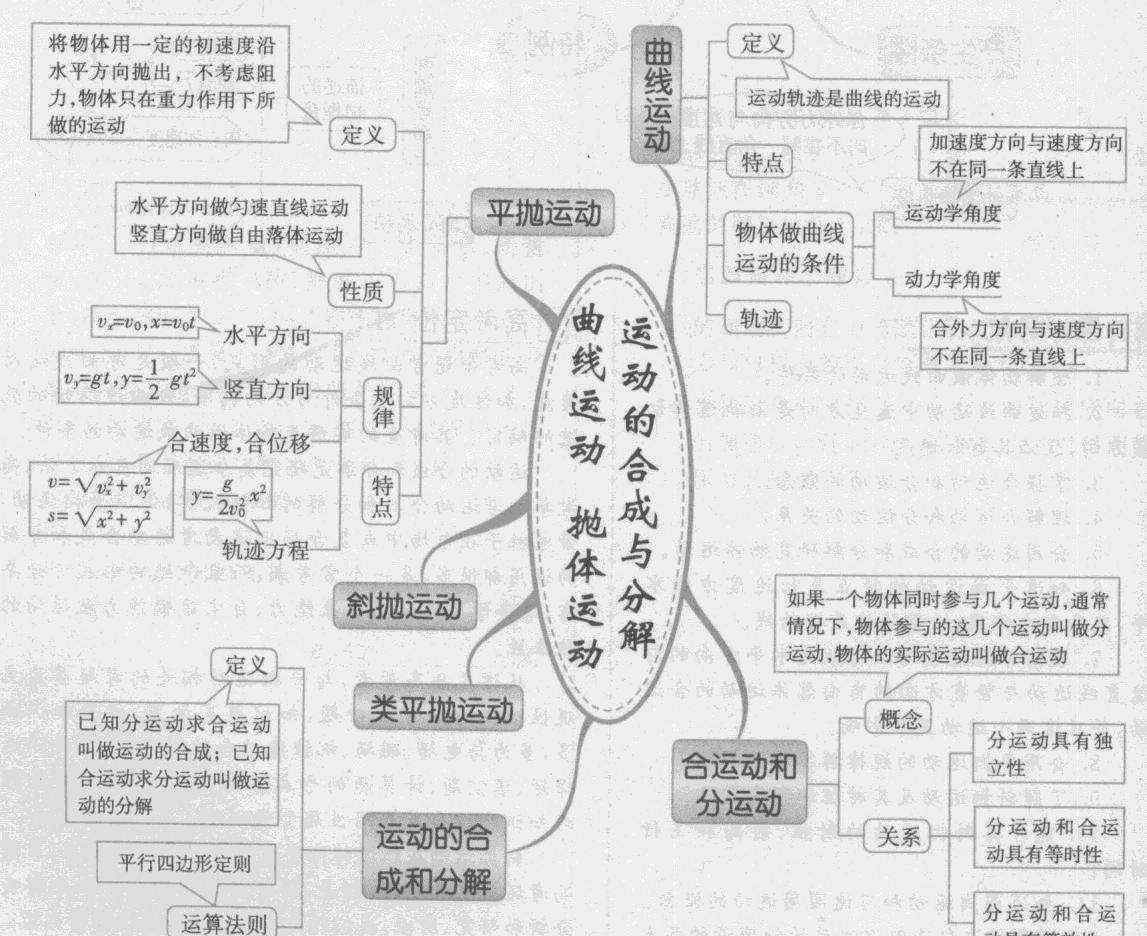 将物体用一定的初速度沿
水平方向抛出，不考虑阻
力,物体只在重力作用下所
做的运动
定义
水平方向做匀速直线运动
竖直方向做自由落体运动
性质
平抛运动
vₓ=v₀,x=v₀t
水平方向
v_y=gt,y=\frac{1}{2}gt²
竖直方向
规律
合速度,合位移
v=\sqrt{v_x^2+v_y^2}
s=\sqrt{x²+y²}
y=\frac{g}{2v_0^2}x²
轨迹方程
特点
斜抛运动
类平抛运动
定义
已知分运动求合运动
叫做运动的合成；已知
合运动求分运动叫做运
动的分解
平行四边形定则
运算法则
运动的合
成和分解
曲线运动 抛体运动
运动的合成与分解
曲线运动
定义
运动轨迹是曲线的运动
特点
物体做曲线
运动的条件
加速度方向与速度方向
不在同一条直线上
运动学角度
动力学角度
合外力方向与速度方向
不在同一条直线上
轨迹
如果一个物体同时参与几个运动,通常
情况下,物体参与的这几个运动叫做分
运动,物体的实际运动叫做合运动
概念
合运动和
分运动
关系
分运动具有独
立性
分运动和合运
动具有等时性
分运动和合运